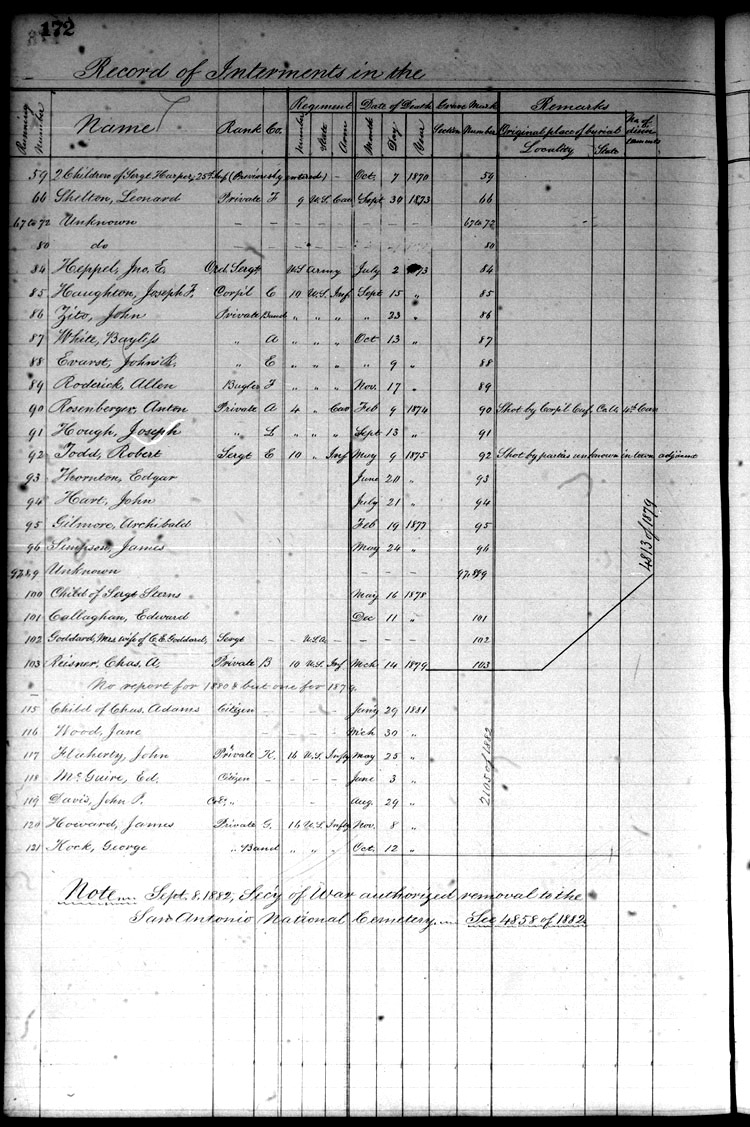 172
Record of Interments in the
Running Number Name Rank Co. Regiment Number State Arm Date of Death Month Day Year Grave Mark Section Number Remarks Original place of burial Locality State No. of disinterments
59 2 Children of Sergt Harper, 25th Inf (Previously entered) – Oct. 7 1870 59
66 Shelton, Leonard Private F 9 U.S. Cav Sept 30 1873 66
67 to 72 Unknown – – – – – – – – 67 to 72
80 do – – – – – – – – 80
84 Heppel, Jno. E. Ord. Sergt U.S. Army July 2 1873 84
85 Haughton, Joseph F. Corp'l C 10 U.S. Inf Sept 15 " 85
86 Zito, John Private Band " " " " 23 " 86
87 White, Bayliss " A " " " Oct 13 " 87
88 " E " " " " 9 " 88
89 Roderick, Allen Bugler F " " " Nov. 17 " 89
90 Rosenberger, Anton Private A 4 " Cav Feb 9 1874 90 Shot by Corp'l 4th Cav
91 Hough, Joseph " L " " " Sept 13 " 91
92 Todd, Robert Sergt E 10 " Inf May 9 1875 92 Shot by parties unknown in town adjacent
93 Thornton, Edgar June 20 " 93
94 Hart, John July 21 " 94
95 Gilmore, Archibald Feb 19 1877 95
96 Simpson, James May 24 " 96
97, 8 & 9 Unknown – – – 97, 8 & 9
100 Child of Sergt Sterns May 16 1878
101 Callaghan, Edward Dec 11 " 101
102 Goddard, Mrs wife of C. E. Goddard, Sergt – – U.S.A. – – – – 102
103 Reisner, Chas. A. Private B 10 U.S. Inf Mch 14 1879 103
4813 of 1879
– No report for 1880 & but one for 1879.
115 Child of Chas. Adams Citizen – – – – 29 1881
116 Wood, Jane – – – – Mch 30 "
117 Flaherty, John Private K. 16 U.S. Infty May 25 "
118 McGuire, Ed. Citizen – – – June 3 "
119 Davis, John P. " – – Aug. 29 "
120 Howard, James Private G. 16 U.S. Infty Nov. 8 "
121 Kock, George " Band " " " Oct. 12 "
2105 of 1882
Note Sept. 8, 1882, Sec'y of War authorized removal to the
San Antonio National Cemetery. See 4858 of 1882